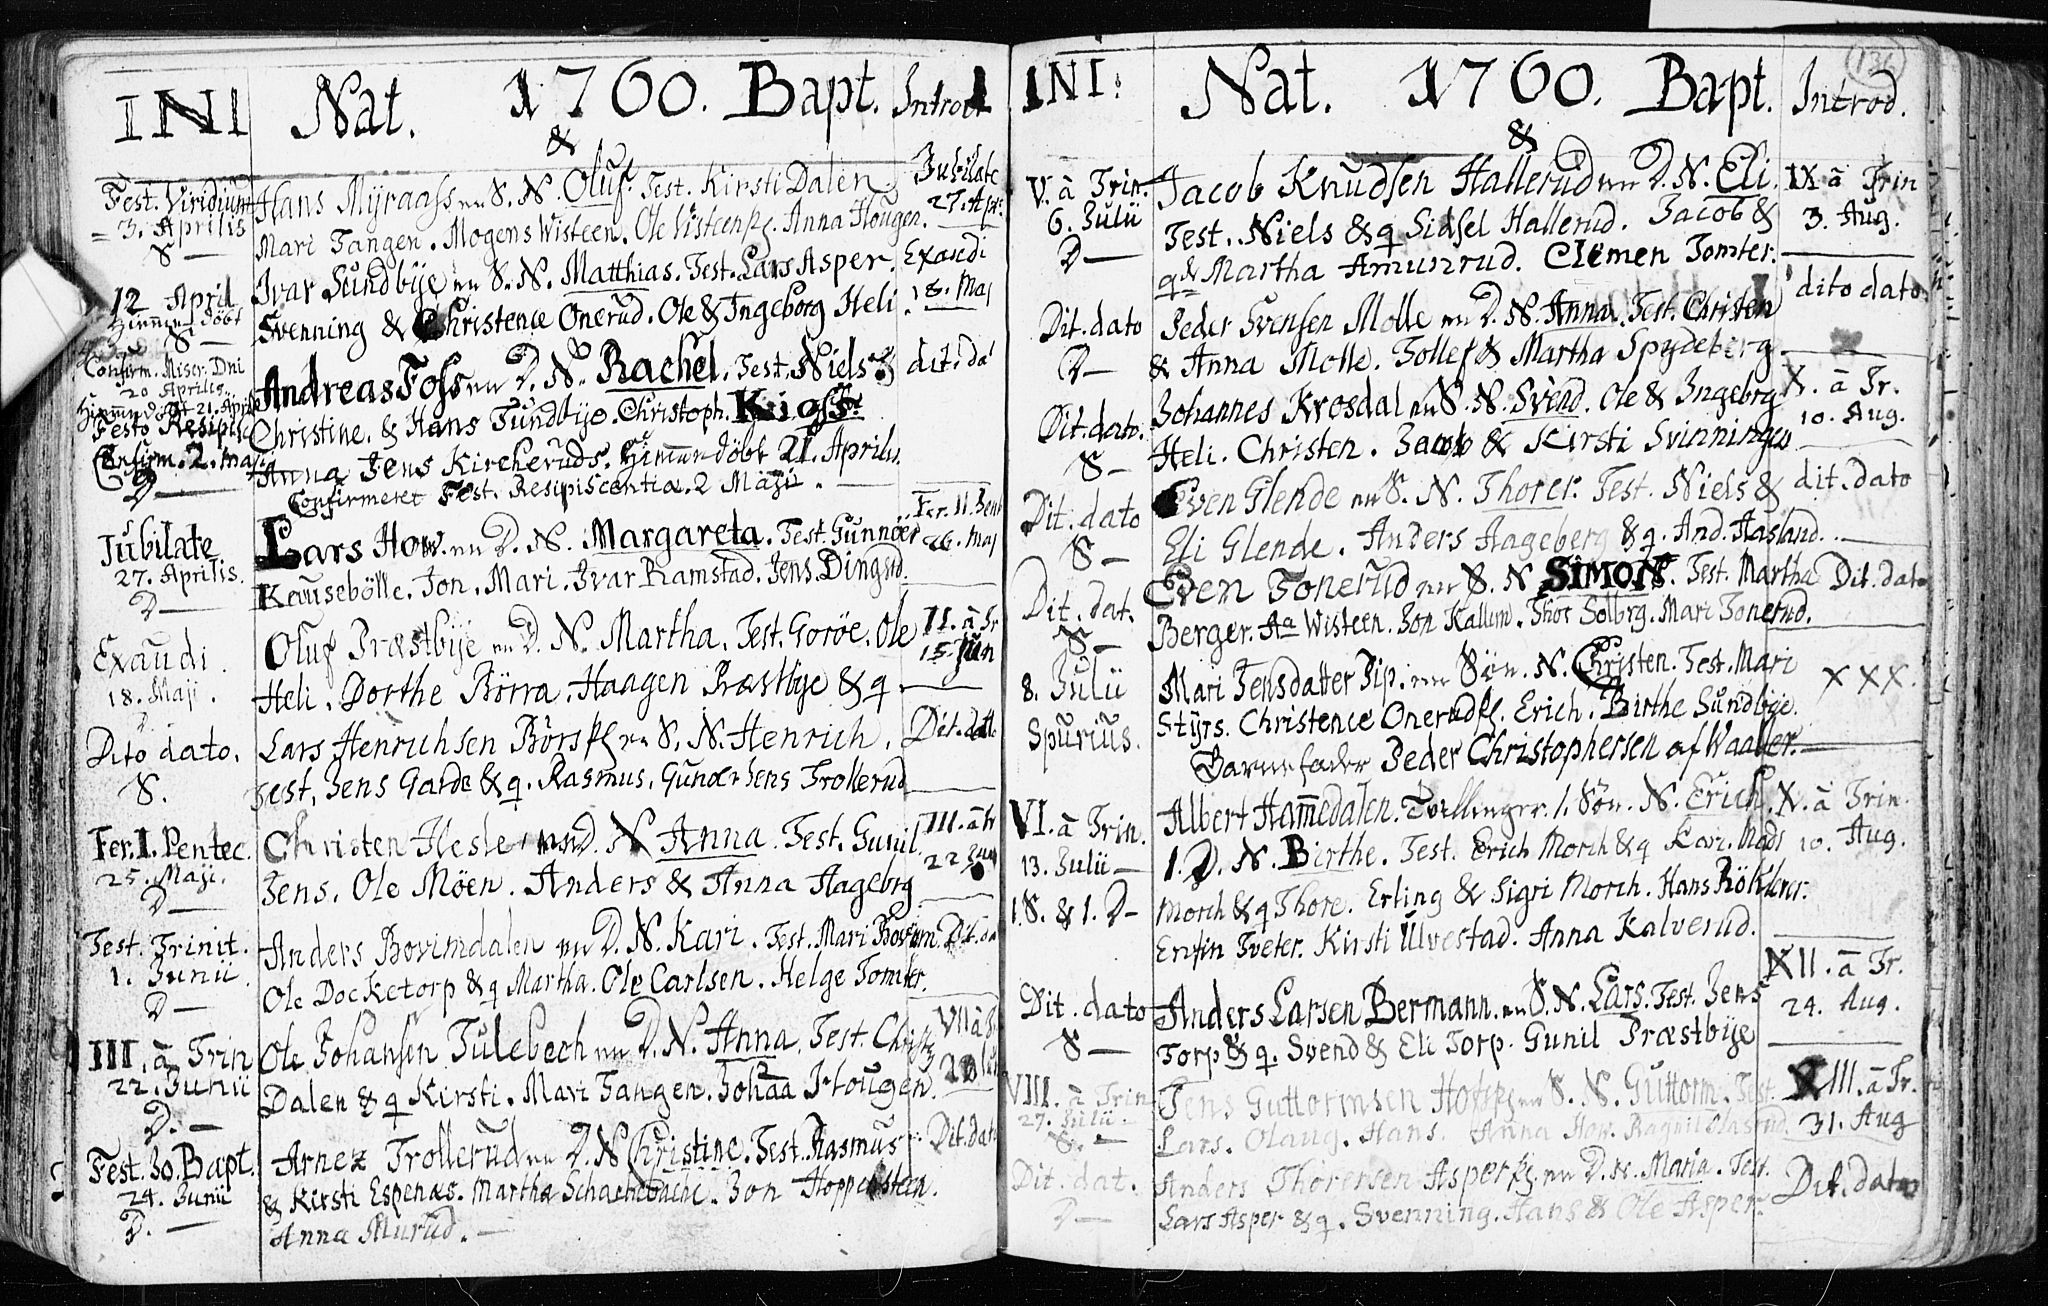 INI Nat. & 1760. Bapt. Introd
Fest. Viridium Hans Myraass S. N. Oluf. Test. Kirsti Dalen Jubilate
3. Aprilis Mari Tangen. Mogens Wisteen. Ole Visteensk. Anna Hougen. 27. Apr.
S — Ivar Sundbye S. N. Matthias. Test. Lars Asper. Exaudi
12 April Svenning & Christence Onerud. Ole & Ingeborg Heli. 18. Maj
Hiemme döbt
S —
Confirm. Miser. Dni Andreas Foss D. N. Rachel. Test. Niels & dit. da
20 Aprilis
Hiemme döbt 21. April Christine. & Hans Sundbye. Christoph.
Festo Resipisc. Anna Jens Kircheruds. Hiemme döbt 21. Aprilis.
Confirm. 2. Maji Confirmeret Fest. Resipiscentiæ. 2 Maji.
D —
Jubilate Lars How. D. N. Margareta. Test. Gunnoer Fer. II. Pent
27. Aprilis. Kausebölle. Jon. Mari. Ivar Ramstad. Jens Dingsrd. 26. Maj
D —
Exaudi. Oluf Præstbye D. N. Martha. Test. Goröe. Ole II. à Tr
18. Maji. Heli. Dorthe Börra. Haagen Præstbye & q. 15. Jun
D
Dito dato. Lars Henrichsen Börsk S. N. Henrich. Dit. dato
S. Test. Jens Garde & q. Rasmus. Guner Jens Trollerud
Fer. I. Pentec. Christen Hesle D. N. Anna. Test. Gunil III. à tr
25. Maji. Jens. Ole Möen. Anders & Anna Hagebrg 22 Jun
D —
Fest. Trinit. Anders Bovimdalen D. N. Kari. Test. Mari Bovim. Dit. da
1. Junii Ole Docketorp & q Martha. Ole Carlsen. Helge Tomter.
D —
III. à Trin Ole Johansen Tulebech D. N. Anna. Test. Christ VII à Tr
22. Junii Dalen & q Kirsti. Mari Tangen. Johaa Hougen. 20 Jul
D. —
Fest. Jo. Bapt. Arne Trollerud D. N Christine. Test. Rasmus Dit. dat
24. Junii & Kirsti Espenæs. Martha Schachebache. Jon Hoppesteen.
D. — Anna Murud. —
INI. Nat. & 1760. Bapt. Introd. 136
V. à Trin. Jacob Knudsen Hallerud D. N. Eli. IX à Trin
6. Julii Test. Niels & q Sidsel Hallerud. Jacob & 3. Aug.
D — q & Martha Amunrud. Clemen Tomter.
Dit. dato Peder Svensen Molle D. N. Anna. Test. Christen dito dato
D — & Anna Molle. Tollef & Martha Spydeberg
Dit. dato. Johannes Krosdal S. N. Svend. Ole & Ingebrg X. à Tr.
S — Heli. Christen. Jacob & Kirsti Svinninge 10. Aug.
Dit. dato Even Glende S. N. Thorer. Test. Niels & dit. dato
S — Eli Glende. Anders Hageberg & q. And. Hasland.
Dit. dat. Even Tonerud S. N SIMON. Test. Martha Dit. dato
S — Berger. Aa Wisteen. Jon Kallum. Thor Solbrg. Mari Tonerud.
8. Julii Mari Jensdatter Pip. Sön. N. Christen. Test. Mari XXX.
Spurius. Styrs. Christence Onerudsk. Erich. Birthe Sundbye.
Barnefader Peder Christophersen af Waaler.
VI. à Trin. Albert Hamedalen. Tvellinger. 1. Sön. N. Erich X. à Trin.
13. Julii — 1. D. N. Birthe. Test. Erich Morch & q Kari. Mads 10. Aug.
1. S. & 1. D — Morch & q Thore. Erling & Sigri Morch. Hans
Tveter. Kirsti Ulvestad. Anna Kalverud.
Dit. dato Anders Larsen Bermann. S. N. Lars. Test. Jens XII. à Tr.
S — Torp & q. Svend & Eli Torp. Gunil Præstbye 24. Aug.
VIII. à Trin Jens Guttormsen S. N. Guttorm. Test. XIII. à Tr.
27. Julii. Lars. Olaug. Hans. Anna How. Ragnil 31. Aug
S. —
Dit. dat. Anders Thoresen Aspersk. D. N. Maria. Test. Dit. dato
D — Lars Asper & q. Svenning. Hans & Ole Asper.